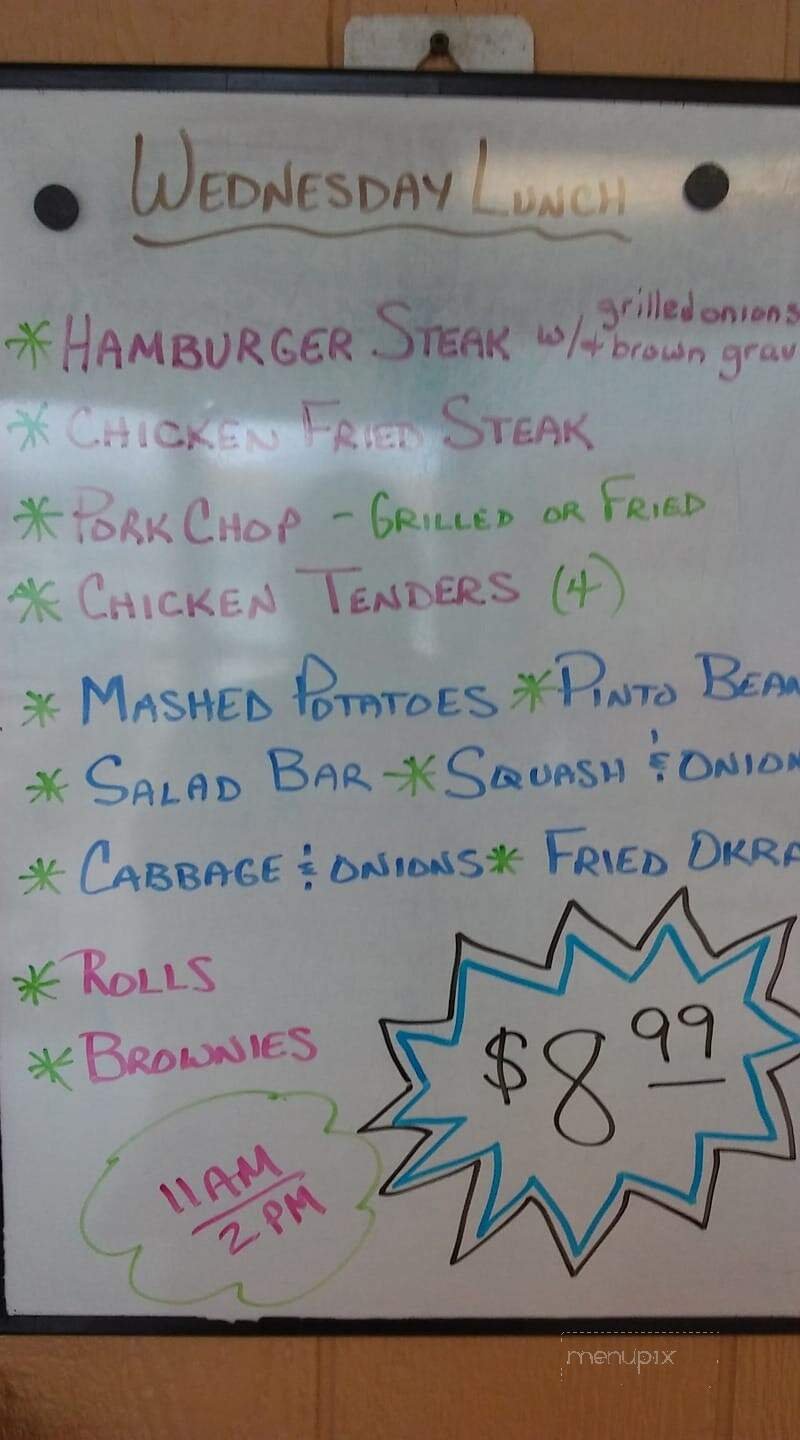 WEDNESDAY LUNCH
* HAMBURGER STEAK w/ grilled onions
+ brown grav
* CHICKEN FRIED STEAK
* PORK CHOP - GRILLED OR FRIED
* CHICKEN TENDERS (4)
* MASHED POTATOES * PINTO BEAN
* SALAD BAR * SQUASH & ONION
* CABBAGE & ONIONS * FRIED OKRA
* ROLLS
* BROWNIES
$8.99
11AM
2PM
menupix